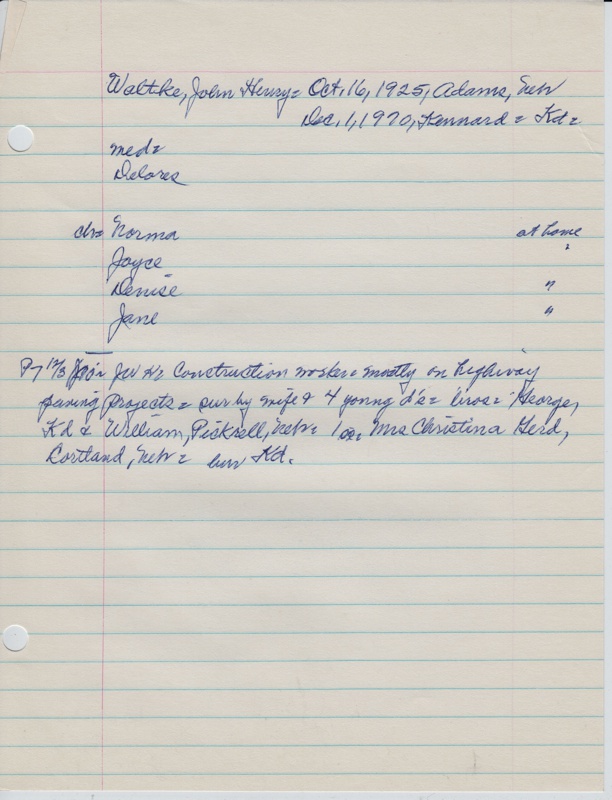 Waltke, John Henry = Oct. 16, 1925, Adams, Neb
Dec. 1, 1970, Kennard = Kd =
med =
Delores
ch = Norma at home
Joyce "
Denise "
Jane "
P-T 12/3 Construction worker = mostly on highway
paving projects = sur by wife & 4 young d's = bros = George,
Kd & William, Pickrell, Neb = 1 sis. Mrs Christina Gerd,
Cortland, Neb = bur Kd.